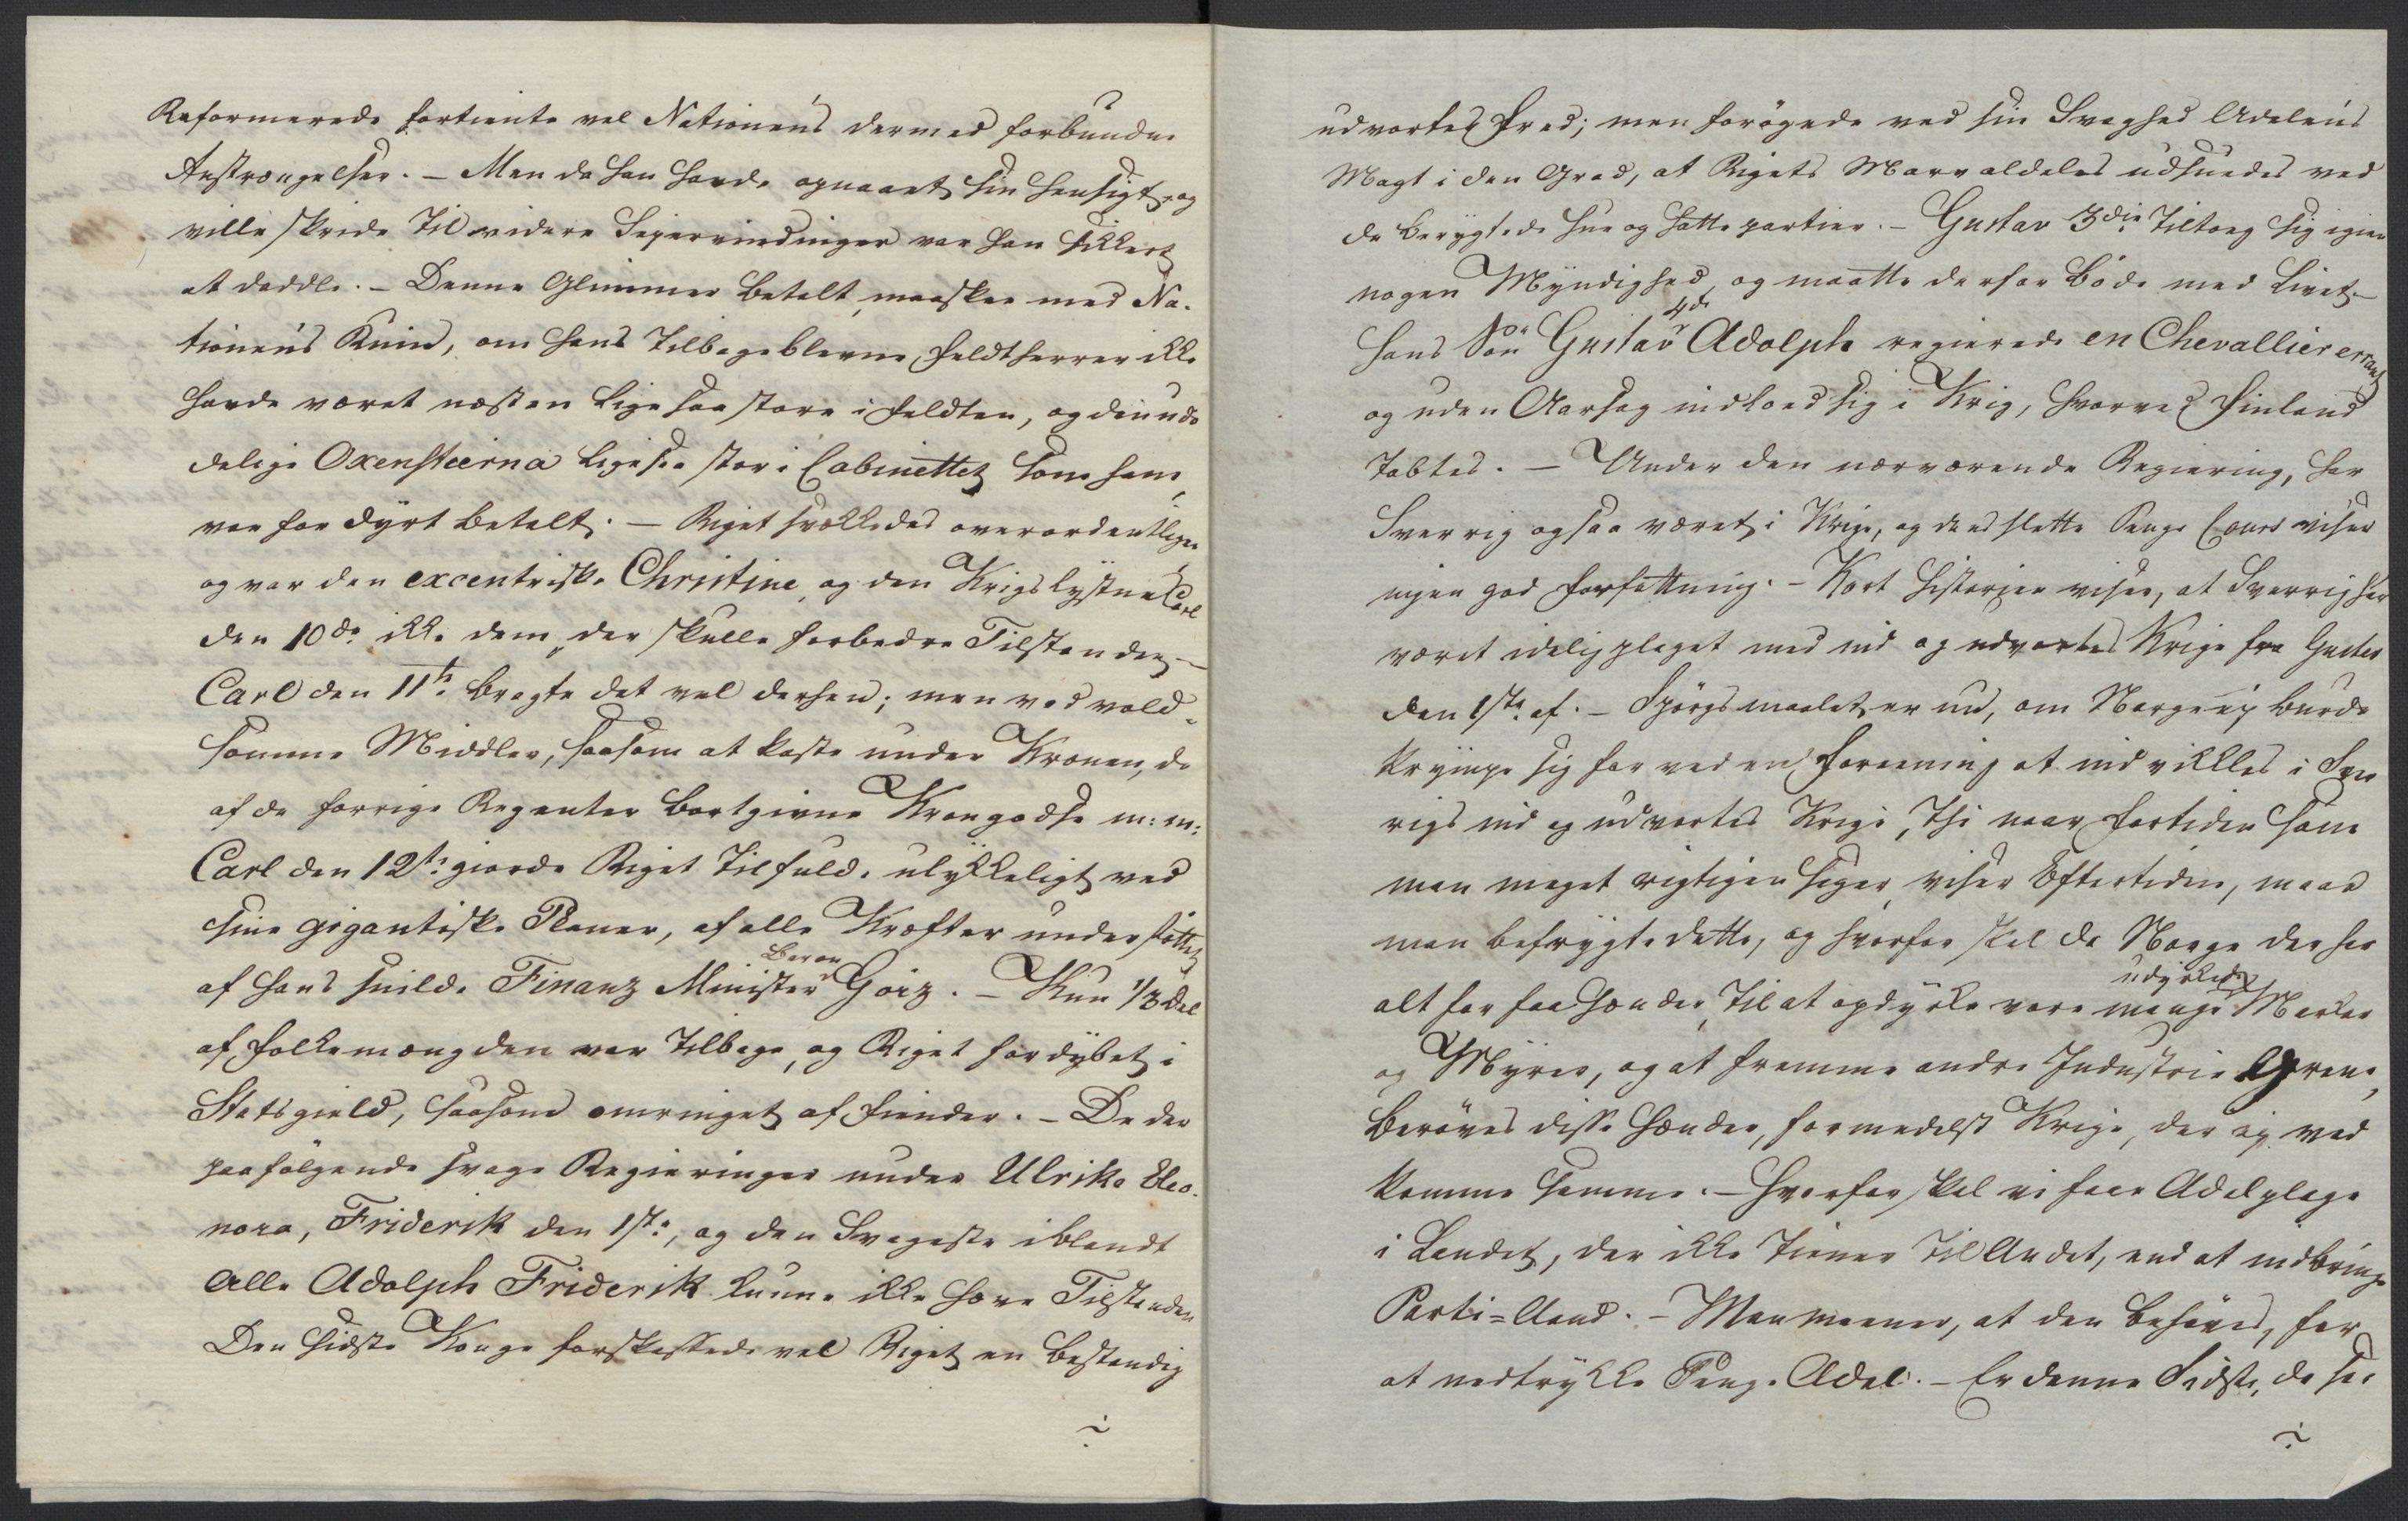 Reformerede fortiente vel Nationens dermed forbundne
Anstrængelser. – Men da han havde opnaaet sin Hensigt, og
ville skride til videre Seiervindinger var han sikkert
at dadle. – Denne Glimmer betalt maaskee med Na-
tionens Ruin, om hans tilbageblevne Feldtherrer ikke
havde været næsten ligesaa store i Feldten, og den udø
delige Oxenstierna ligesaa stor i Cabinettet som ham,
var for dyrt betalt. – Riget svækkedes overordentligen
og var den excentriske Christine, og den Krigslystne Carl
den 10de ikke dem, der skulle forbedre Tilstanden –
Carl den 11te bragte det vel derhen; men ved vold-
somme Middler, saasom at kaste under Kronen, de
af de forrige Regenter bortgivne Krongodse m: m:
Carl den 12te giorde Riget tilfulde ulykkeligt ved
sine gigantiske Planer, af alle Kræfter understøttet
af hans snilde Finanz Minister Baron Gørz. – Kun 1/3 Del
af Folkemængden var tilbage, og Riget fordybet i
Statsgield, saasom omringet af Fiender. – De der
paafølgende svage Regieringer under Ulrika Eleo-
nora, Friderik den 1ste, og den Svageste iblandt
Alle Adolph Friderik kunne ikke hæve Tilstanden
Den sidste Konge forskaffede vel Riget en bestandig
udvortes Fred; men forøgede ved sin Svaghed Adelens
Magt i den Grad, at Rigets Marv aldeles udsuedes ved
de berygtede Hue og Hatte partier. – Gustav 3die tiltoeg sig igien
nogen Myndighed, og maatte derfor bøde med Livet –
Hans Søn Gustav 4de Adolph regierede en Chevallier errant
og uden Aarsag indloed sig i Krig, hvorved Finland
tabtes. – Under den nærværende Regiering, har
Sverrig ogsaa været i Krige, og dens slette Penge Cours viser
ingen god Forfattning. – Kort Historien viser, at Sverrig har
været idelig plaget med ind og udvortes Krige fra Gustav
den 1ste af. – Spørgsmaalet er nu, om Norge ej burde
krympe sig for ved en Foreening at indvikkles i Sver
rigs ind og udvortes Krige, Thi naar Fortiden som
man meget rigtigen siger, viser Eftertiden, maae
man befrygte dette, og hvorfor skal da Norge der har
alt for faa Hænder, til at opdyrke vore mange udyrkede Marker
og Myrer, og at fremme andre Industrie Grene,
berøves disse Hænder, formedelst Krige, der ej ved
komme samme. – Hvorfor skal vi faae Adelplage
i Landet, der ikke tiener til Andet, end at indbringe
Parti-Aand. – Man meener, at den behøves, for
at nedtrykke Penge Adel. – Er denne Sidste, da saa